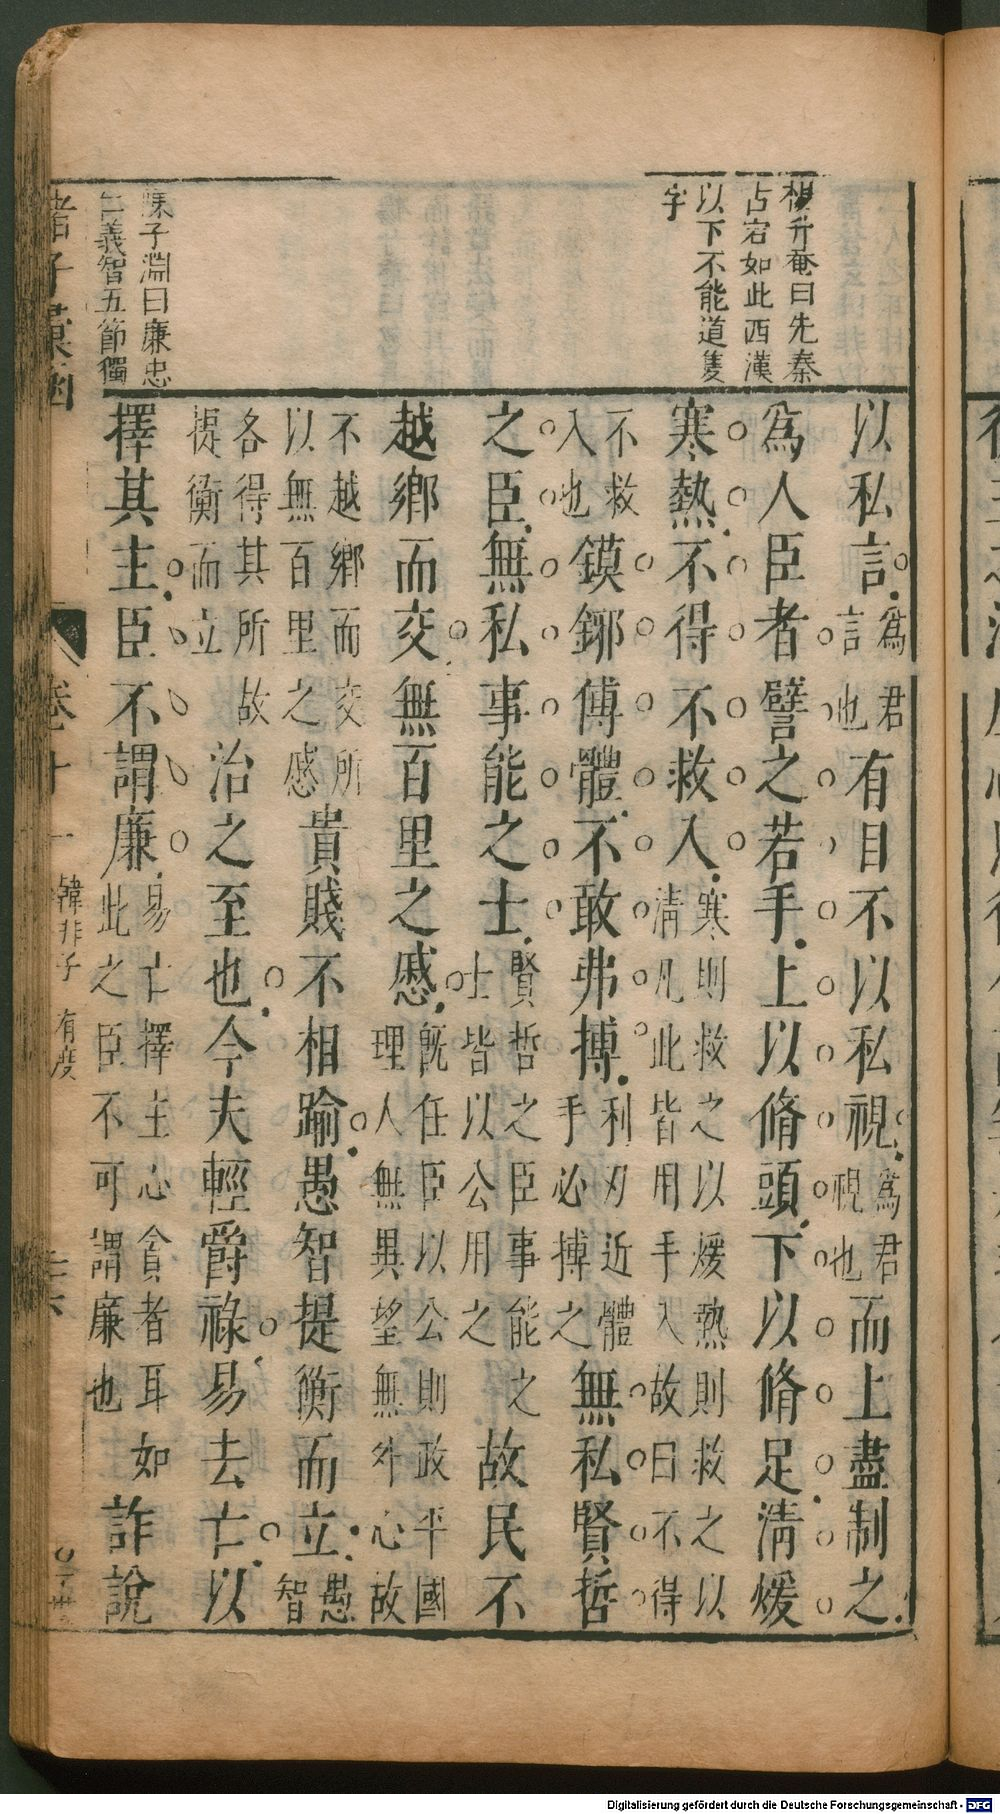 楊升菴曰先秦
占宕如此西漢
以下不能道隻
字
陳子淵曰廉忠
仁義智五節獨
以私言為君言也有目不以私視為君視也而上盡制之
為人臣者譬之若手上以脩頭下以脩足清煖
寒熱不得不救入寒則救之以煖熱則救之以清凡此皆用手入故曰不得不救入也鏌鋣傅體不敢弗搏利刃近體手必搏之無私賢哲
之臣無私事能之士賢哲之臣事能之士皆以公用之故民不
越鄉而交無百里之慼既任臣以公則政平國理人無異望無外心故不越鄉而交所以無百里之慼貴賤不相踰愚智提衡而立愚智各得其所故提衡而立
治之至也今夫輕爵祿易去亡以
擇其主臣不謂廉易亡擇主心貪者耳如此之臣不可謂廉也詐說
諸子彙函
卷十一
韓非子 有度
Digitalisierung gefördert durch die Deutsche Forschungsgemeinschaft - DFG